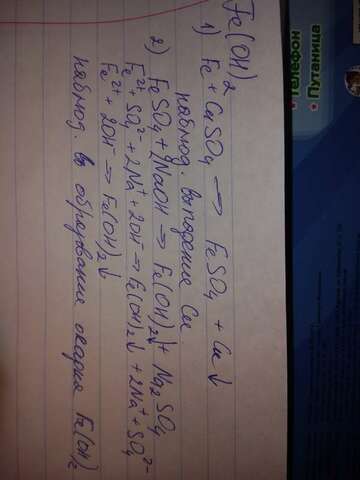 Fe(OH)₂
1) Fe + CuSO₄ → FeSO₄ + Cu↓
наблюд. выпадение Cu
2) FeSO₄ + 2NaOH → Fe(OH)₂↓ + Na₂SO₄
Fe²⁺ + SO₄²⁻ + 2Na⁺ + 2OH⁻ → Fe(OH)₂↓ + 2Na⁺ + SO₄²⁻
Fe²⁺ + 2OH⁻ → Fe(OH)₂↓
наблюд. образование осадка Fe(OH)₂
Телефон
Путаница